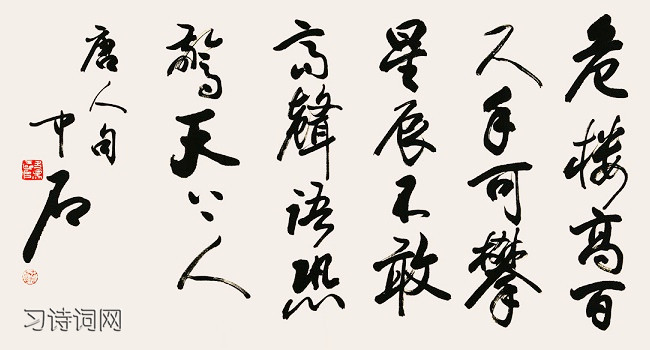 危楼高百
尺手可攀
星辰不敢
高聲語恐
驚天上人
唐人句
中石
习诗词网